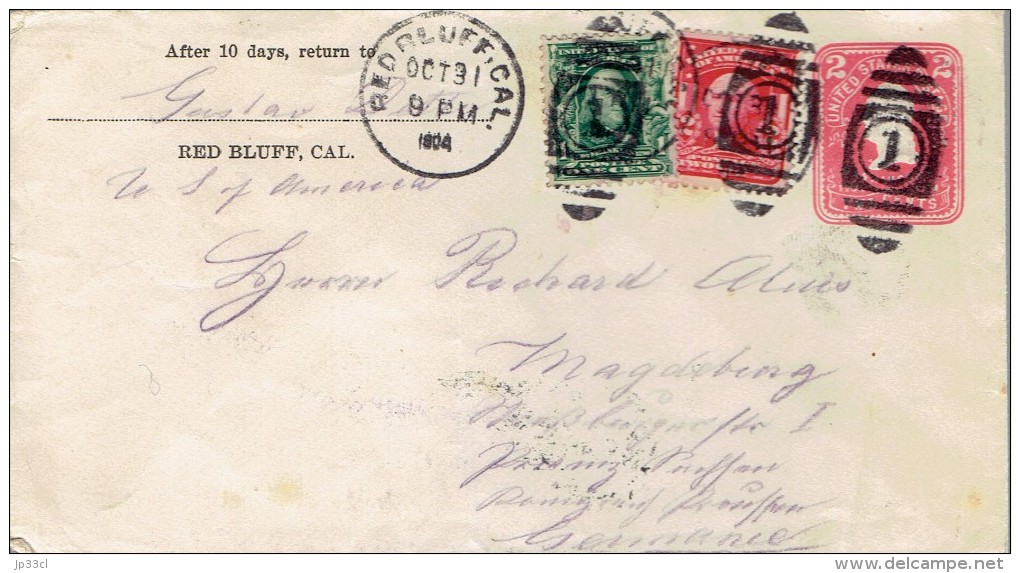 After 10 days, return to
Gustav
RED BLUFF, CAL.
U S of America
RED BLUFF, CAL.
OCT 31
9 PM
1904
1
1
1
2 UNITED STATES 2
Herrn Richard
Magdeburg
str I
Provinz Sachsen
Königreich Preußen
Germanie
© jp33cl
delcampe.net